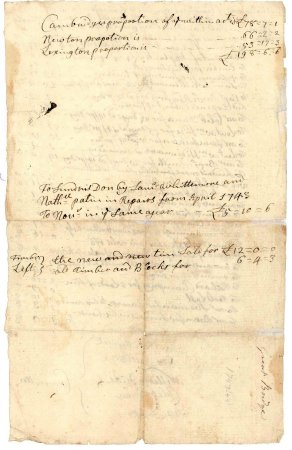 Cambridges proportion of
Newton propotion is 66 = 2 = 2
Lexington proportion is 53 = 17 = 3
£198 = 6 = 6
To Sundres Don by Saml Whittemore and
Nathll patin in Repairs from April 1748
To Novr in ye Same year £5 = 10 = 6
Timber the new and new tim Sale for £12 = 0 = 0
Left old Timber and Blocks for 6 = 4 = 3
great Bridge